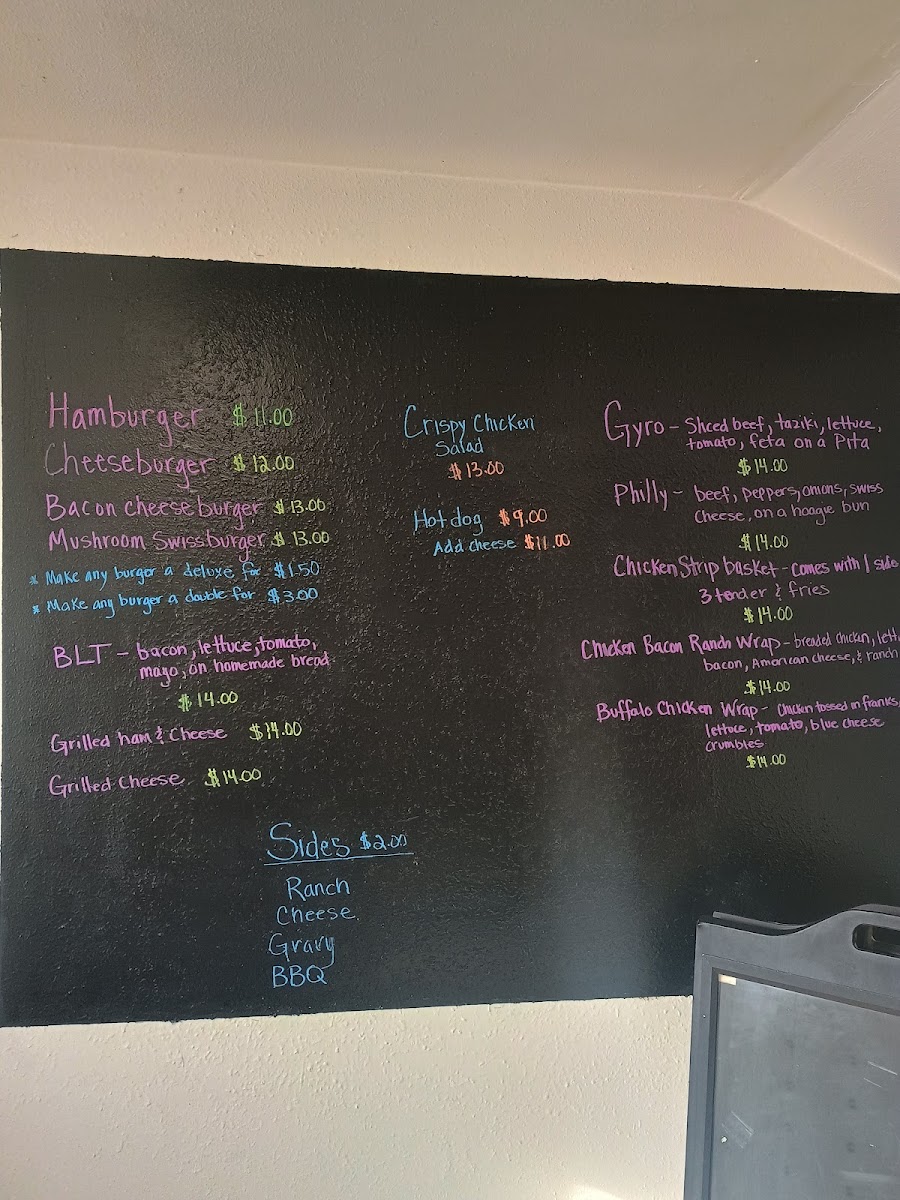 Hamburger $11.00
Cheeseburger $12.00
Bacon cheeseburger $13.00
Mushroom Swissburger $13.00
* Make any burger a deluxe for $1.50
* Make any burger a double for $3.00
BLT - bacon, lettuce, tomato,
mayo, on homemade bread
$14.00
Grilled ham & Cheese $14.00
Grilled Cheese $14.00
Crispy Chicken
Salad
$13.00
Hotdog $9.00
Add cheese $11.00
Gyro - Sliced beef, taziki, lettuce,
tomato, feta on a Pita
$14.00
Philly - beef, peppers, onions, swiss
cheese, on a hoagie bun
$14.00
Chicken Strip basket - comes with 1 side
3 tender & fries
$14.00
Chicken Bacon Ranch Wrap - breaded chicken, lett
bacon, American cheese, & ranch
$14.00
Buffalo Chicken Wrap - Chicken tossed in franks,
lettuce, tomato, blue cheese
crumbles
$14.00
Sides $2.00
Ranch
Cheese
Gravy
BBQ